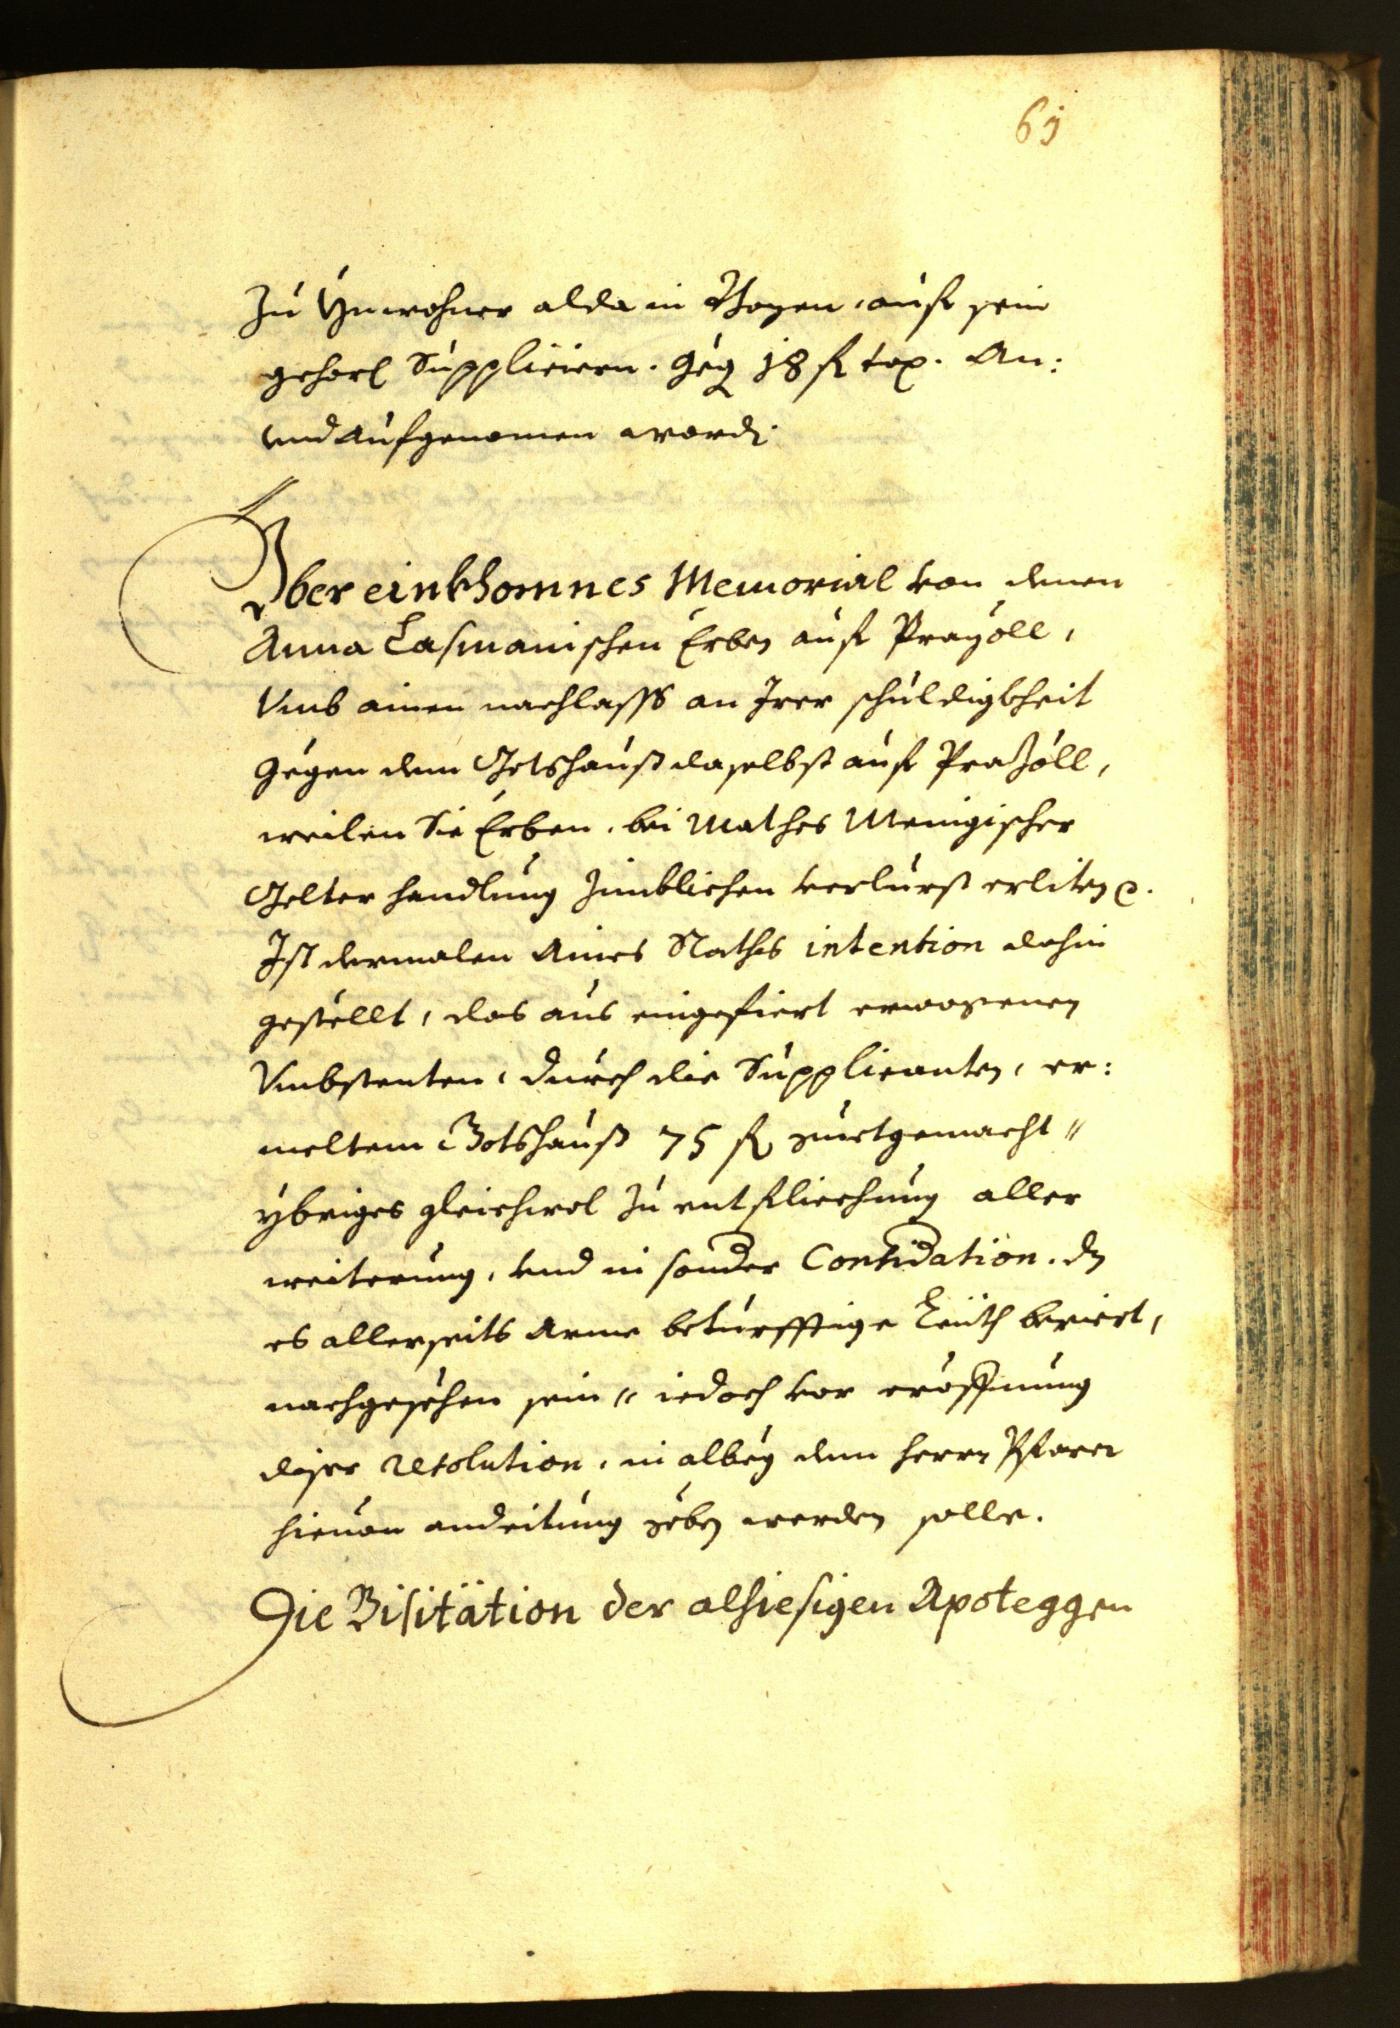 61
Zu Ynwohner alda in Bozen, auf sein
gehorl Suppliciern. Geg 18 fl tax. An:
vnd aufgenomen wordn.
Yber einkhomnes Memorial von denen
Anna Casmanischen Erben auf Prazöll,
Vmb ainen nachlasss an Irer schuldigkheit
gegen dem Gotshauß daselbst auf Prazöll,
weilen Sie Erben, bei Mathes Menigischer
Gelter handlung zimblichen verlurst erliten
Ist dermalen Aines Raths intention dahin
gestellt, das aus eingefiert erwogenen
Vmbstenten, durch die Supplicanten, er:
meltem Gotshauß 75 fl guetgemacht //
ybriges gleichwol zu entfliechung aller
weiterung, vnd in sonder Consideration. dz
es allerseits Arme beturfftige Leuth beriert,
nachgesehen sein // iedoch vor eröffnung
diser resolution, in albeg dem herrn Pfarrer
hieuon andeitung geben werden solle.
Die Visitation der alhiesigen Apoteggen